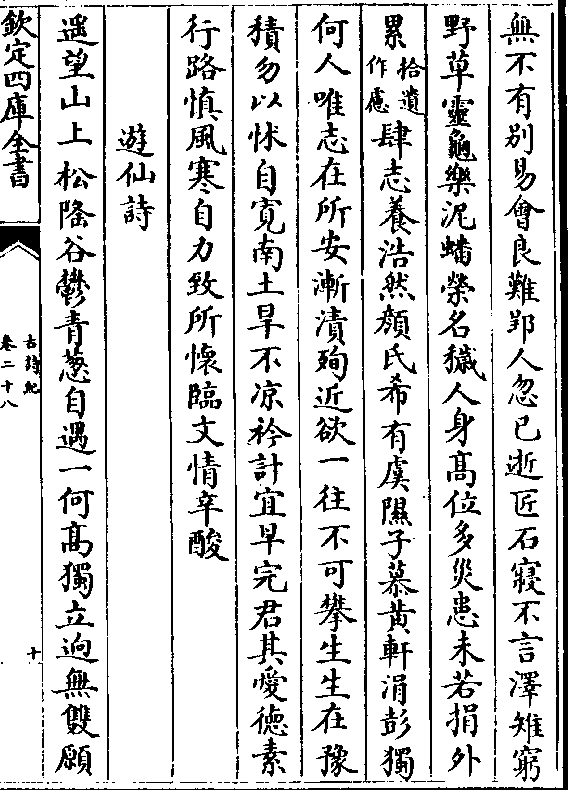 無不有別易會良難郢人忽已逝匠石寢不言澤雉窮
野草靈龜樂泥蟠榮名穢人身髙位多災患未若捐外
累拾遺作慮肆志養浩然顔氏希有虞隰子慕黄軒涓彭獨
何人唯志在所安漸漬殉近欲一往不可攀生生在豫
積勿以怵自寛南土旱不凉衿計宜早完君其愛徳素
行路慎風寒自力致所懷臨文情辛酸
遊仙詩
遥望山上松隆谷鬱青葱自遇一何髙獨立逈無雙願
欽定四庫全書
古詩紀
卷二十八
十